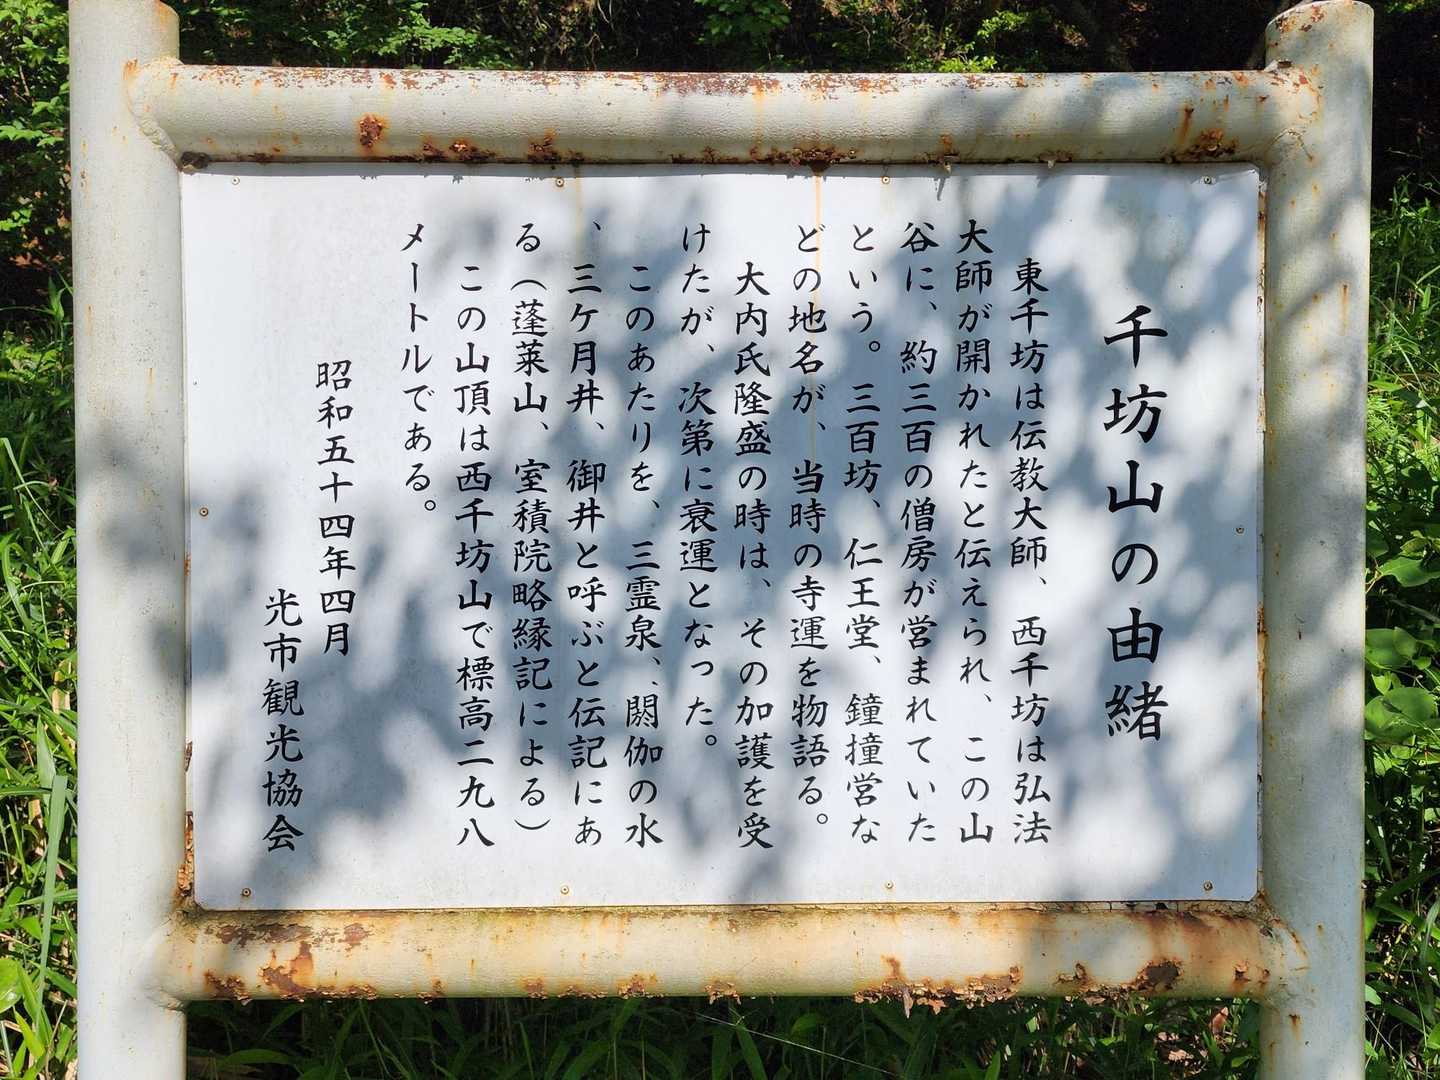 千坊山の由緒
東千坊は伝教大師、西千坊は弘法
大師が開かれたと伝えられ、この山
谷に、約三百の僧房が営まれていた
という。三百坊、仁王堂、鐘撞営な
どの地名が、当時の寺運を物語る。
大内氏隆盛の時は、その加護を受
けたが、次第に衰運となった。
このあたりを、三霊泉、閼伽の水
、三ケ月井、御井と呼ぶと伝記にあ
る（蓬莱山、室積院略縁記による）
この山頂は西千坊山で標高二九八
メートルである。
昭和五十四年四月
光市観光協会